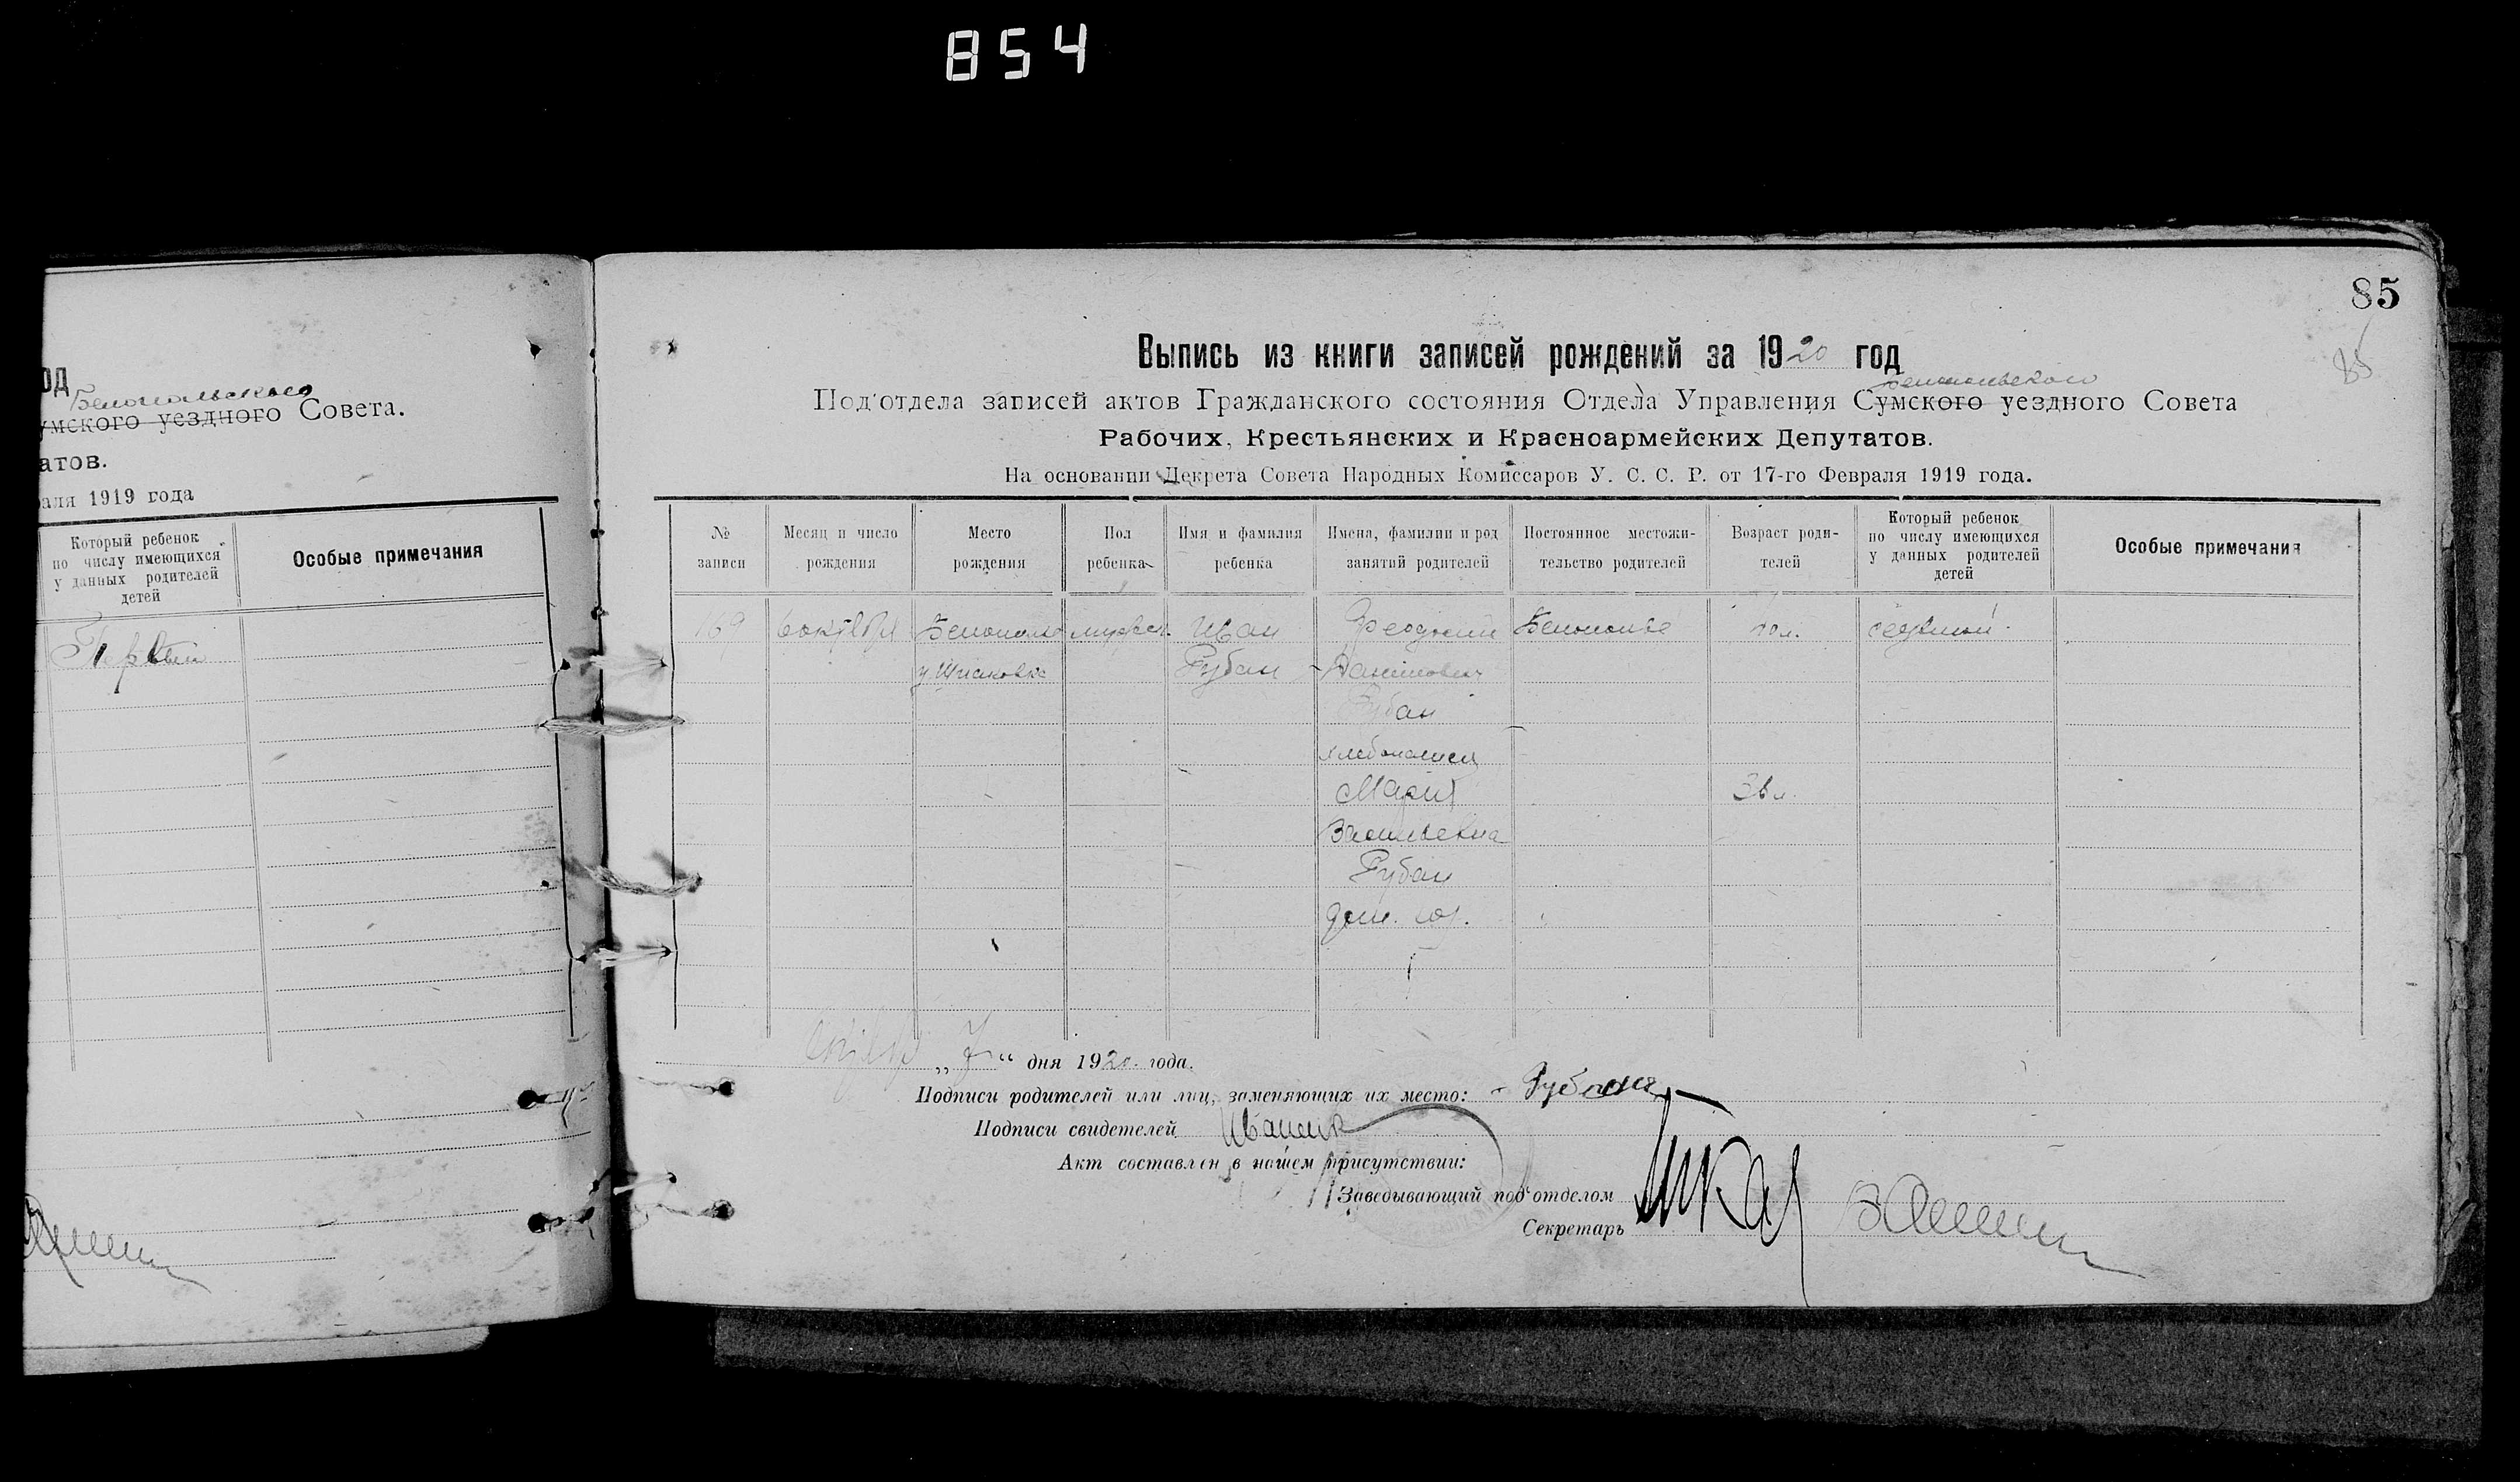 854
од
Белопольского
умского уездного Совета.
атов.
аля 1919 года
Который ребенок
по числу имеющихся
у данных родителей
детей
Особые примечания
Первый
85
85
Выпись из книги записей рождений за 1920 год
Белопольского
Под'отдела записей актов Гражданского состояния Отдела Управления Сумского уездного Совета
Рабочих, Крестьянских и Красноармейских Депутатов.
На основании Декрета Совета Народных Комиссаров У. С. С. Р. от 17-го Февраля 1919 года.
№
записи
Месяц и число
рождения
Место
рождения
Пол
ребенка
Имя и фамилия
ребенка
Имена, фамилии и род
занятий родителей
Постоянное местожи-
тельство родителей
Возраст роди-
телей
Который ребенок
по числу имеющихся
у данных родителей
детей
Особые примечания
169 6 октября Белополье мужск. Иван Феодосий Белополье 40 л. седьмой
Рубан
Рубан
хлебопашец
Мария 36 л.
Васильевна
Рубан
дом. хоз.
октября „7“ дня 1920 года.
Подписи родителей или лиц, заменяющих их место: Рубан
Подписи свидетелей
Акт составлен в нашем присутствии:
Заведывающий под'отделом
Секретарь